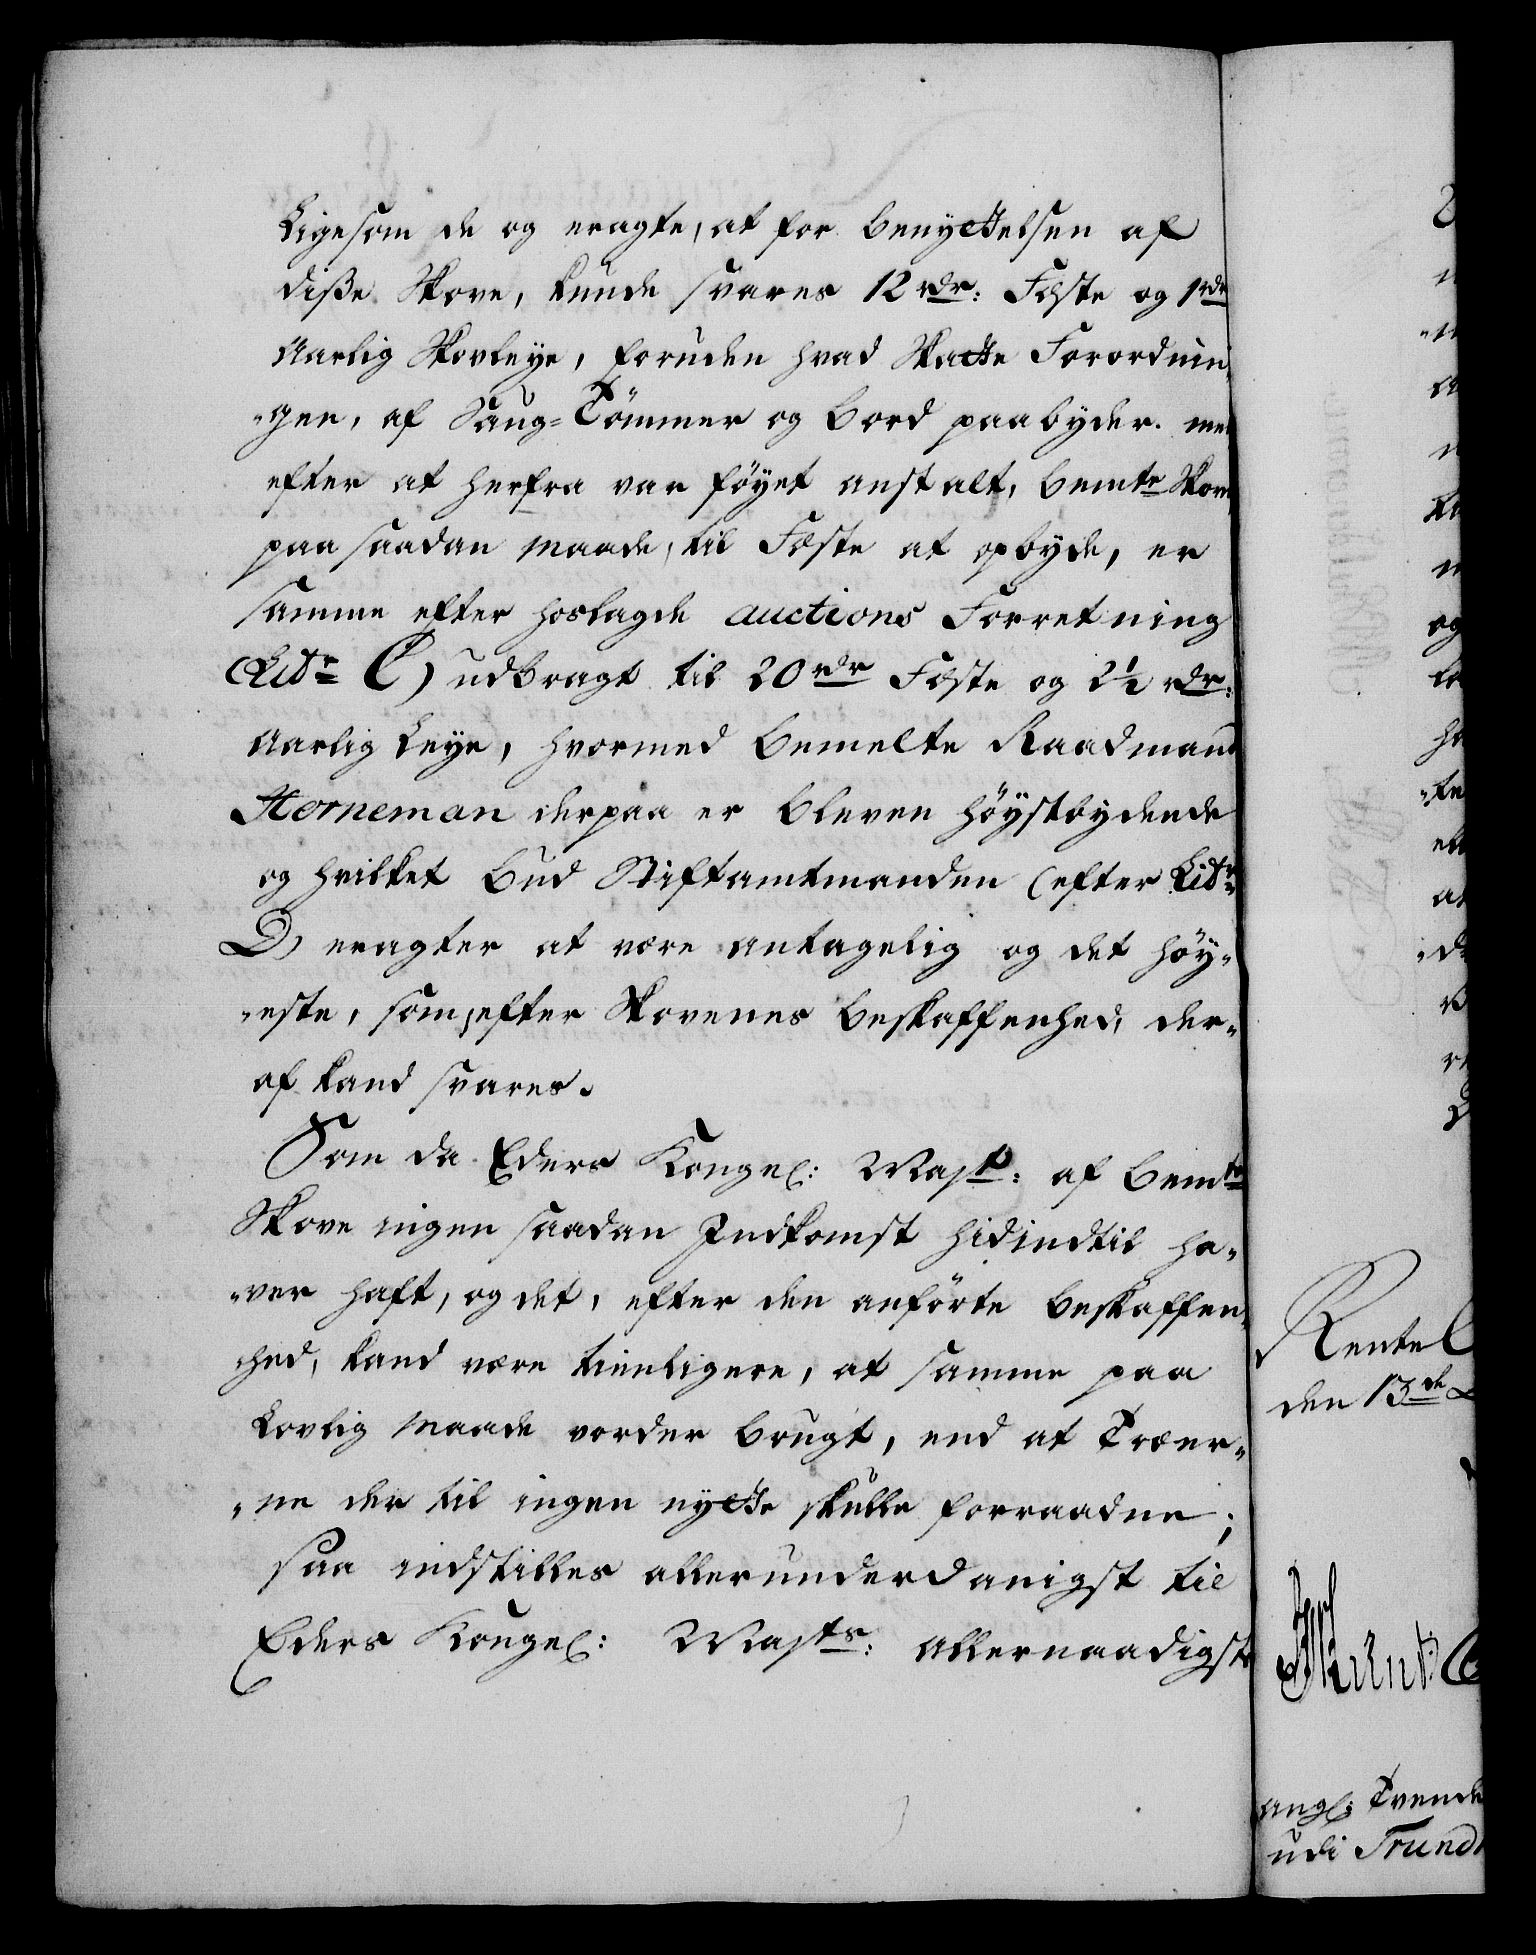 Ligesom de og eragte, at for benyttelsen af
diße Skove, kunde svares 12 rdr: Fæste og 1 rdr
Aarlig Skovleye, foruden hvad Skatte Forordnin-
-gen, af Saug-Tömmer og Bord paabyder. men
efter at herfra var föyet anstalt, bemte Skove
paa saadan Maade, til Fæste at opbyde, er
samme efter hoslagde auctions Forretning
(Litr C) udbragt til 20 rdr Fæste og 2½ rdr:
Aarlig Leye, hvormed bemelte Raadmand
Horneman derpaa er bleven höystbydende
og hvilket Bud Stiftamtmanden (efter Litr
D) eragter at være antagelig og det höy-
-este, som, efter Skovenes beskaffenhed, der-
af kand svares.
Som da Eders Kongel: Mayt: af bemte
Skove ingen saadan Indkomst hidindtil ha-
-ver haft, og det, efter den anförte beskaffen-
-hed, kand være tienligere, at samme paa
Lovlig Maade vorder brugt, end at Træer-
-ne der til ingen nytte skulle forraadne;
saa indstilles allerunderdanigst til
Eders Kongel: Mayts: allernaadigste
Rentel
den 13de
angl: Tvende
udi Trund